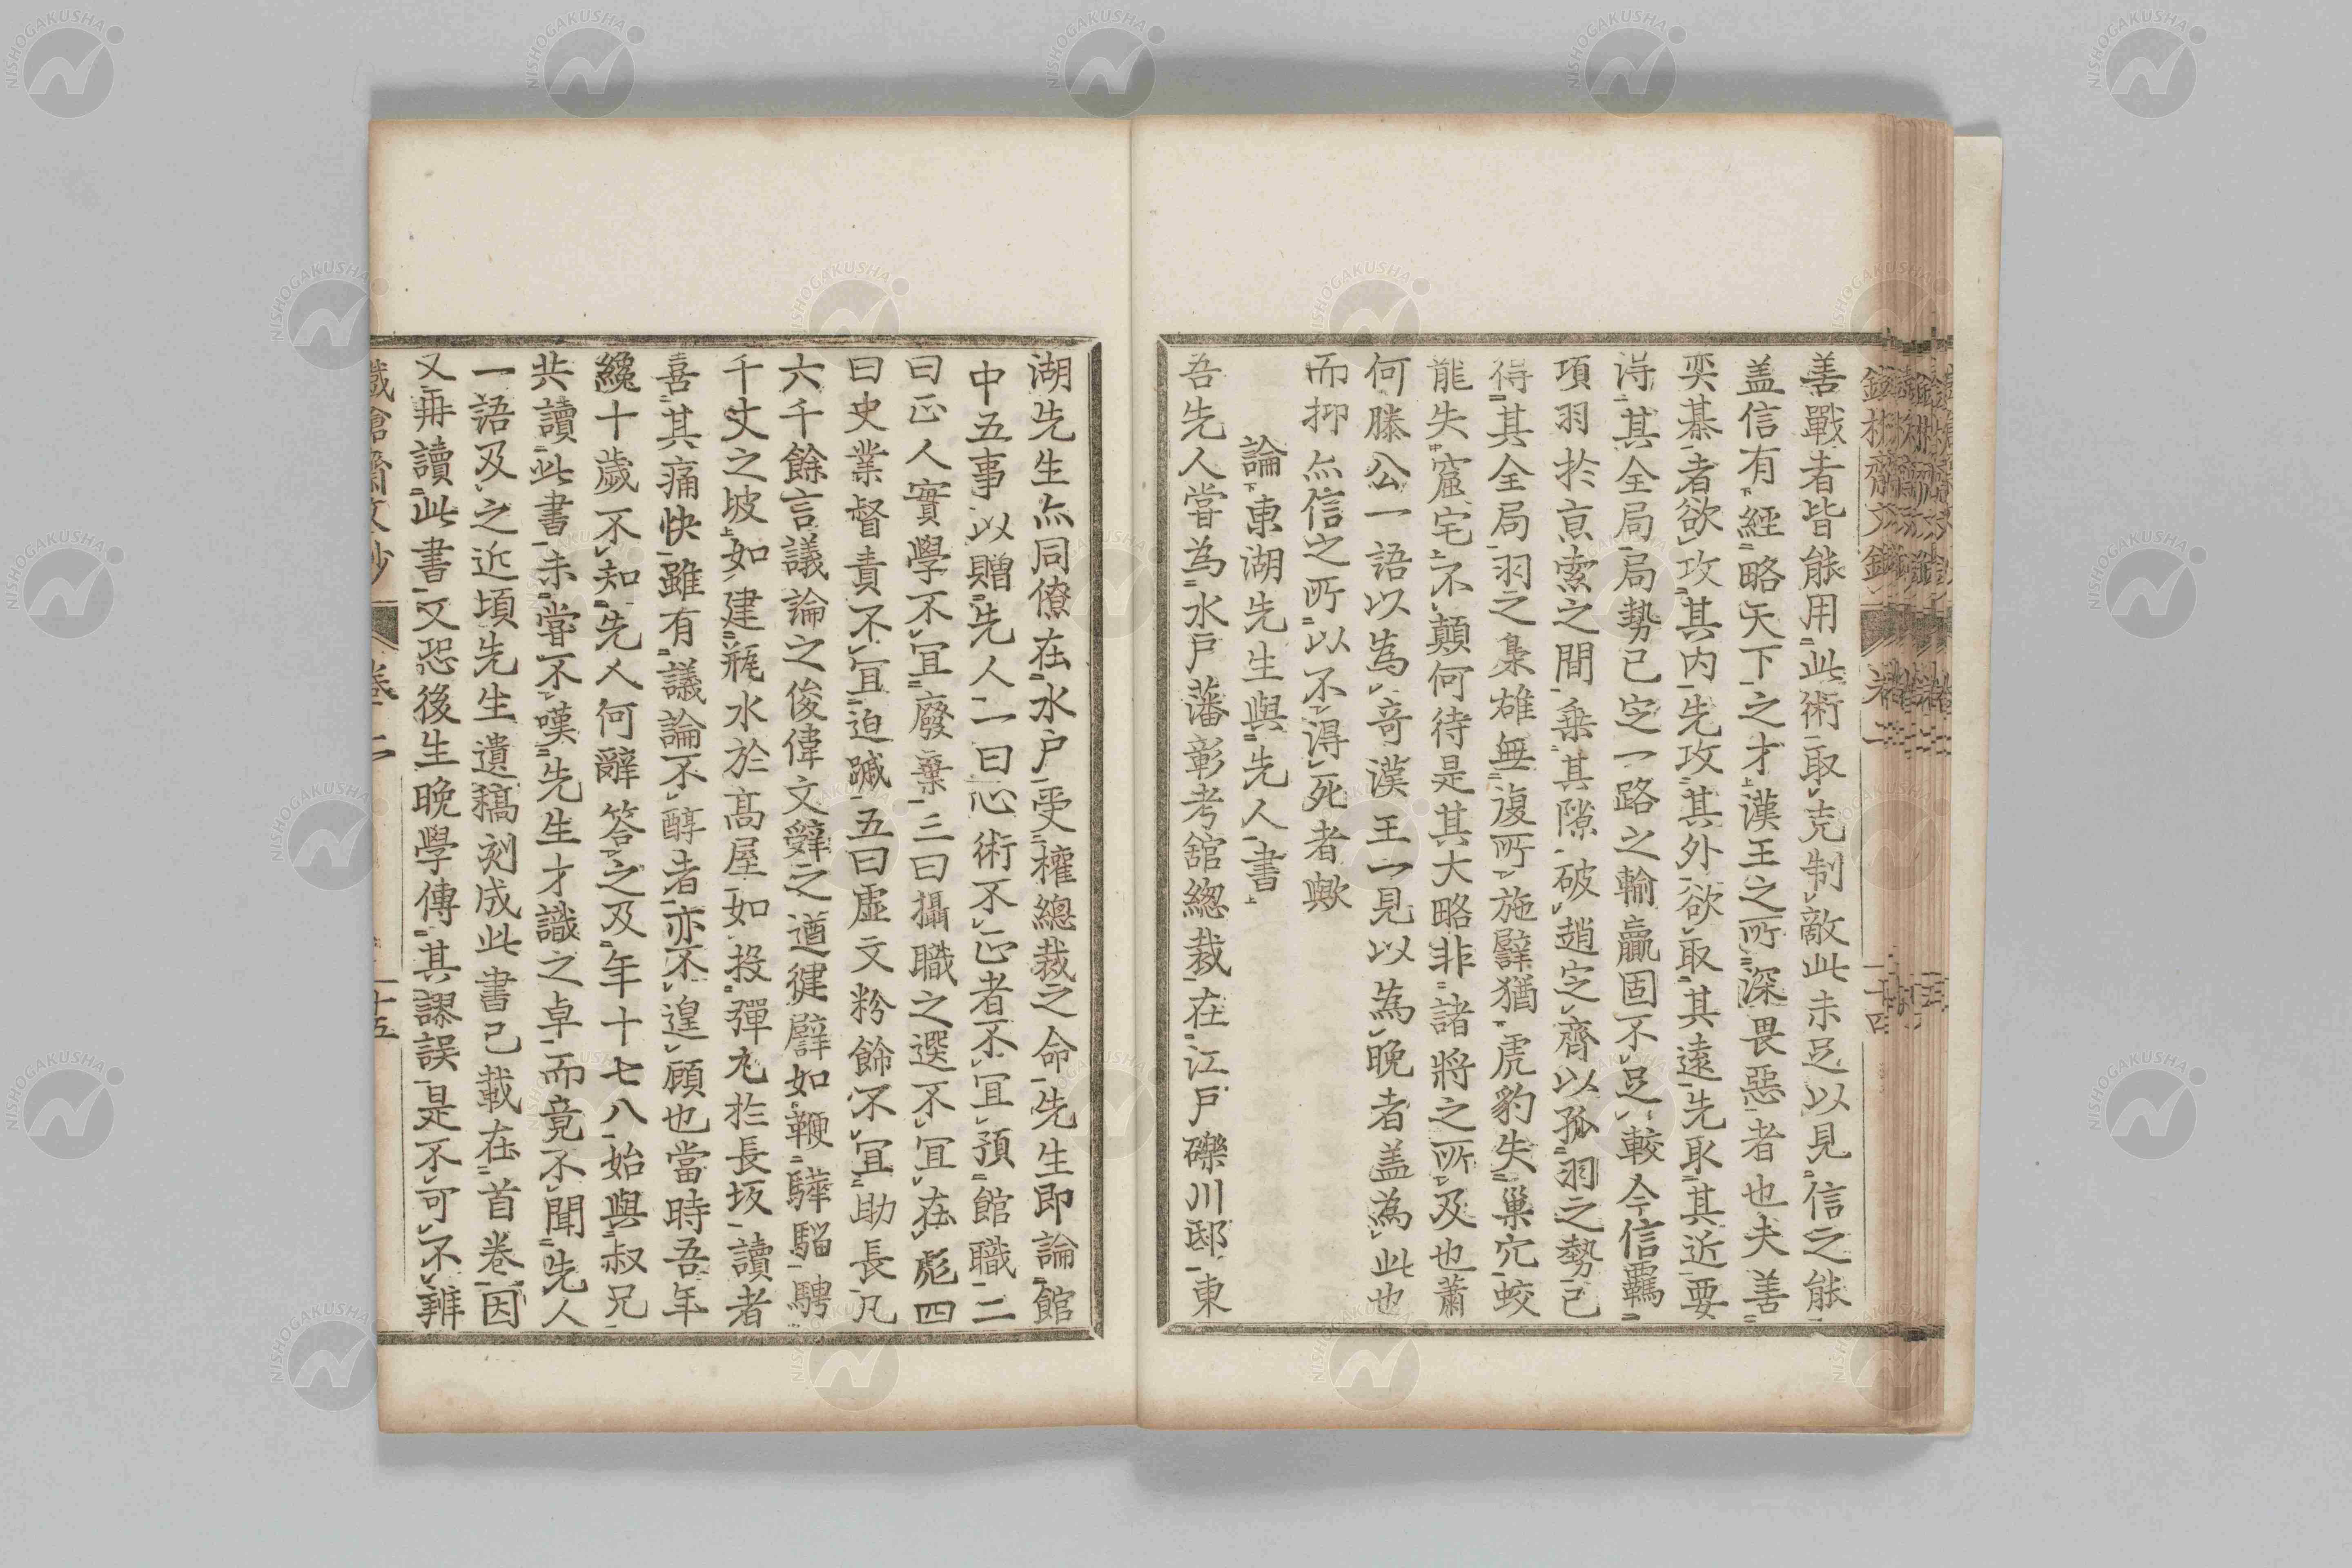 善戰者皆能用此術取克制敵此未足以見信之能
盖信有經略天下之才漢王之所深畏惡者也夫善
奕棊者欲攻其内先攻其外欲取其遠先取其近要
得其全局局勢已定一路之輸贏固不足較今信羈
項羽於京索之間乗其隙破趙定齊以孤羽之勢已
得其全局羽之梟雄無復所施譬猶虎豹失巢穴蛟
龍失窟宅不顛何待是其大略非諸將之所及也蕭
何滕公一語以為奇漢王一見以為晩者盖為此也
而抑亦信之所以不得死者歟
論東湖先生與先人書
吾先人嘗為水戸藩彰考舘總裁在江戸礫川邸東
湖先生亦同僚在水户受権總裁之命先生即論館
中五事以贈先人一曰心術不正者不宜預館職二
曰正人實學不宜廢棄三曰攝職之選不宜在彪四
曰史業督責不宜迫蹴五曰虚文粉餙不宜助長凡
六千餘言議論之俊偉文辭之遒健譬如鞭驊騮騁
千丈之坡如建瓶水於髙屋如投彈丸於長坂讀者
喜其痛快雖有議論不醇者亦不遑顧也當時吾年
纔十歳不知先人何辭答之及年十七八始與叔兄
共讀此書未嘗不嘆先生才識之卓而竟不聞先人
一語及之近頃先生遺稿刻成此書已載在首巻因
又再讀此書又恐後生晩學傳其謬誤是不可不辨
鐵槍齋文鈔 巻二 十五